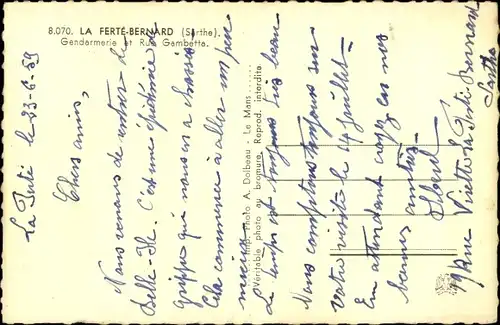 8.070. LA FERTÉ-BERNARD (Sarthe).
Gendarmerie et Rue Gambetta.
Imp. Photo A. Dolbeau - Le Mans
Véritable photo au bromure. Reprod. interdite
La Ferté le 23-6-59
Chers amis,
Nous venons de rentrer de
Belle-Ile. C'est une épidémie de
grippe qui nous en a chassés
Cela commence à aller un peu
mieux.
Le temps est toujours très beau
Nous comptons toujours sur
votre visite le 14 juillet.
En attendant croyez en nos
bonnes amitiés
9 Rue Viette La Ferté Bernard
Sarthe